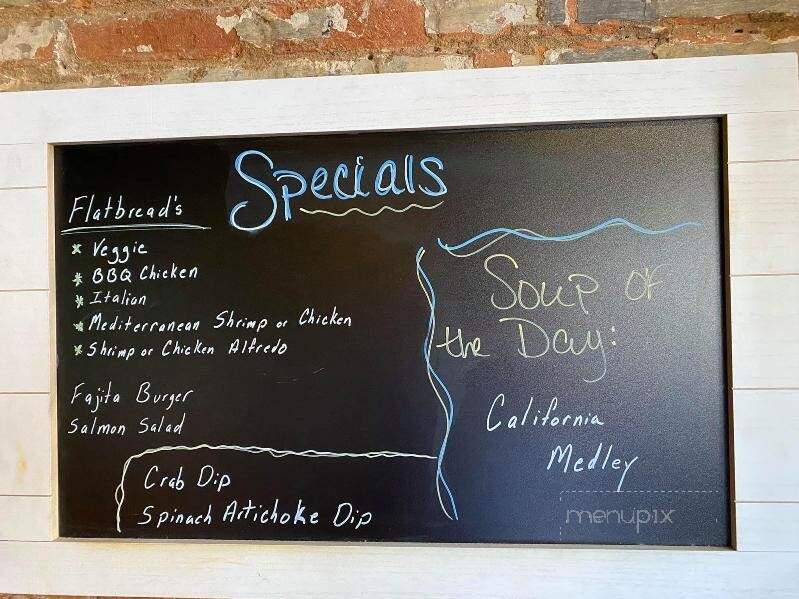 Specials
Flatbread's
* Veggie
* BBQ Chicken
* Italian
* Mediterranean Shrimp or Chicken
* Shrimp or Chicken Alfredo
Fajita Burger
Salmon Salad
Crab Dip
Spinach Artichoke Dip
Soup of
the Day:
California
Medley
menupix